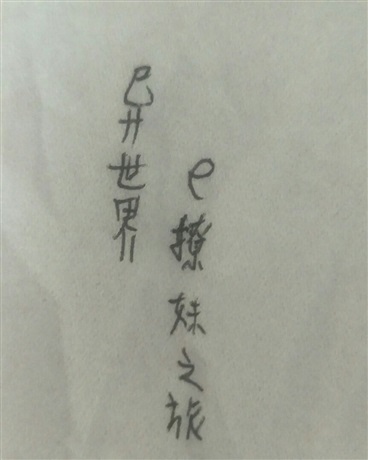 异世界
e撩妹之旅